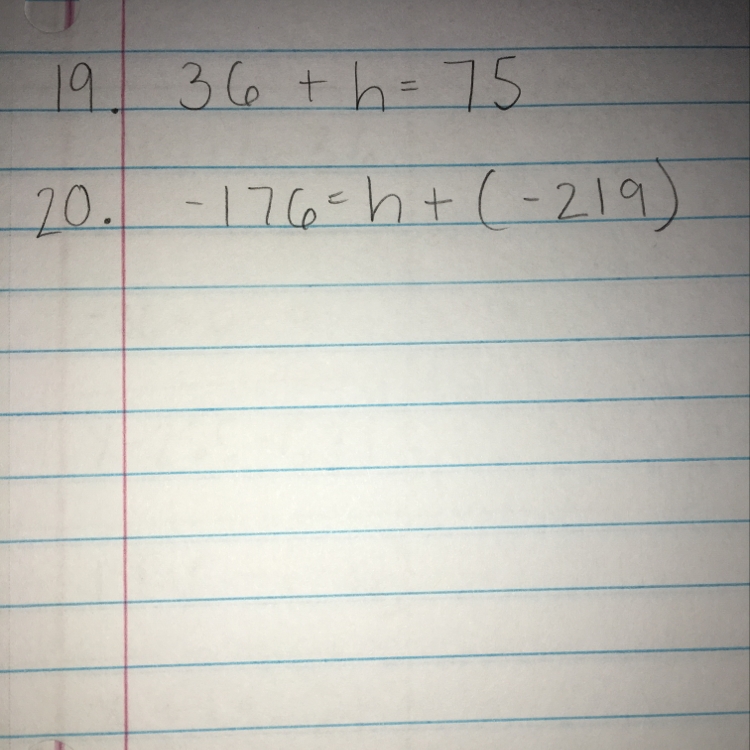 19. 36 + h = 75
20. -176 = h + (-219)